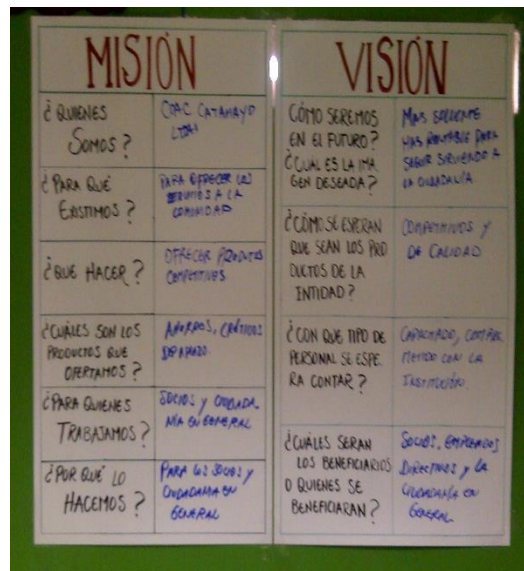 MISIÓN
¿QUIENES
SOMOS?
COAC CATAMAYO
LTDA
¿PARA QUÉ
EXISTIMOS?
PARA OFRECER LOS
A LA
COMUNIDAD
¿QUE HACER?
OFRECER PRODUCTOS
COMPETITIVOS
¿CUÁLES SON LOS
PRODUCTOS QUE
OFERTAMOS?
AHORROS, CRÉDITOS
¿PARA QUIENES
TRABAJAMOS?
SOCIOS Y CIUDADA
NÍA EN GENERAL
¿POR QUÉ LO
HACEMOS?
PARA LOS SOCIOS Y
CIUDADANIA EN
GENERAL
VISIÓN
CÓMO SEREMOS
EN El FUTURO?
¿CUÁL ES LA IMA
GEN DESEADA?
MAS SOLVENTE
MAS RENTABLE PARA
SEGUIR SIRVIENDO A
LA CIUDADANÍA.
¿CÓMO SE ESPERAN
QUE SEAN LOS PRO
DUCTOS DE LA
INTIDAD?
COMPETITIVOS Y
DE CALIDAD
¿CON QUE TIPO DE
PERSONAL SE ESPE
RA CONTAR?
CAPACITADO, COMPRO
METIDO CON LA
INSTITUCIÓN.
¿CUÁLES SERAN
LOS BENEFICIARIOS
O QUIENES SE
BENEFICIARAN?
SOCIOS, EMPLEADOS
DIRECTIVOS Y LA
CIUDADANÍA EN
GENERAL